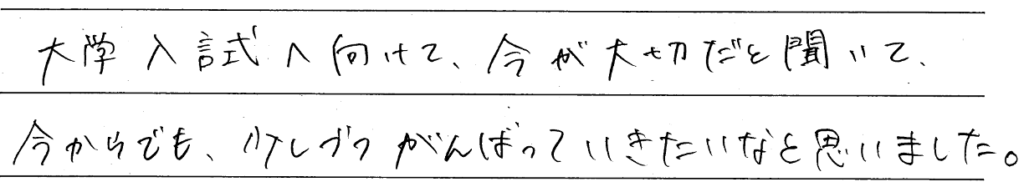 大学入試へ向けて、今が大切だと聞いて、
今からでも、少しづつがんばっていきたいなと思いました。